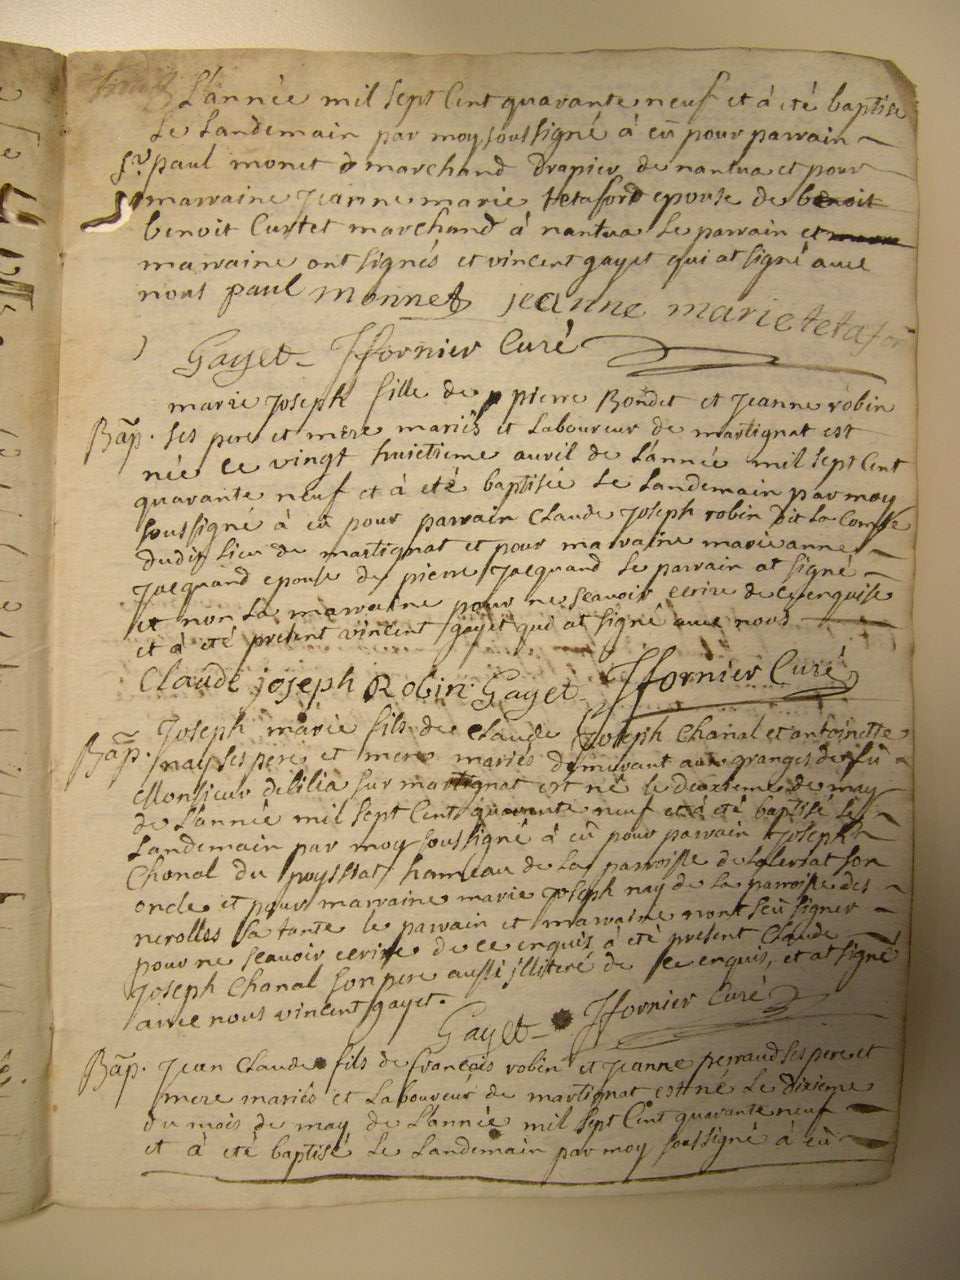 L'année mil sept Cent quarante neuf et à été baptisé
Le Landemain par moy soussigné à eü pour parrain
Sr. paul monet marchand Drapier de nantua et pour
marraine Jeanne marie tetafort epouse de benoit
benoit Curtet marchand à nantua Le parrain et
marraine ont signés et vincent gayet qui at signé avec
nous paul monnet jeanne marie tetafor
Gayet JFornier Curé
marie Joseph fille de pierre Bondet et Jeanne robin
Bap. ses pere et mere mariés et Laboureur de martignat est
née le vingt huictieme avril de L'année mil sept Cent
quarante neuf et à été baptisée Le Landemain par moy
soussigné à eü pour parrain Claude Joseph robin Dit La
dudit Lieu de martignat et pour marraine marie anne
Jacquand epouse de pierre Jacquand Le parrain at signé
et non La marraine pour ne sçavoir ecrire de ce enquise
et à été present vincent gayet qui at signé avec nous
Claude joseph Robin Gayet JFornier Curé
Joseph marie fils de Claude Joseph Chanal et antoinette
Bap. nay ses pere et mere mariés demeurant aux granges de fü
Monsieur delilia sur martignat est né le deuxieme de may
de L'année mil sept Cent quarante neuf et à été baptisé Le
Landemain par moy soussigné à eü pour parrain Joseph
Chanal du poyssat hameau de La parroisse de son
oncle et pour marraine marie Joseph nay de La parroisse des
nerolles sa tante le parrain et marraine n'ont sçü signer
pour ne sçavoir ecrire de ce enquis à été present Claude
Joseph Chanal son pere aussi jlliteré de ce enquis, et at signé
avec nous vincent gayet.
Gayet JFornier Curé
Bap. Jean Claude fils de françois robin et Jeanne perraud ses pere et
mere mariés et Laboureur de martignat est né Le dixieme
du mois de may de L'année mil sept Cent quarante neuf
et à été baptisé Le Landemain par moy soussigné à eü